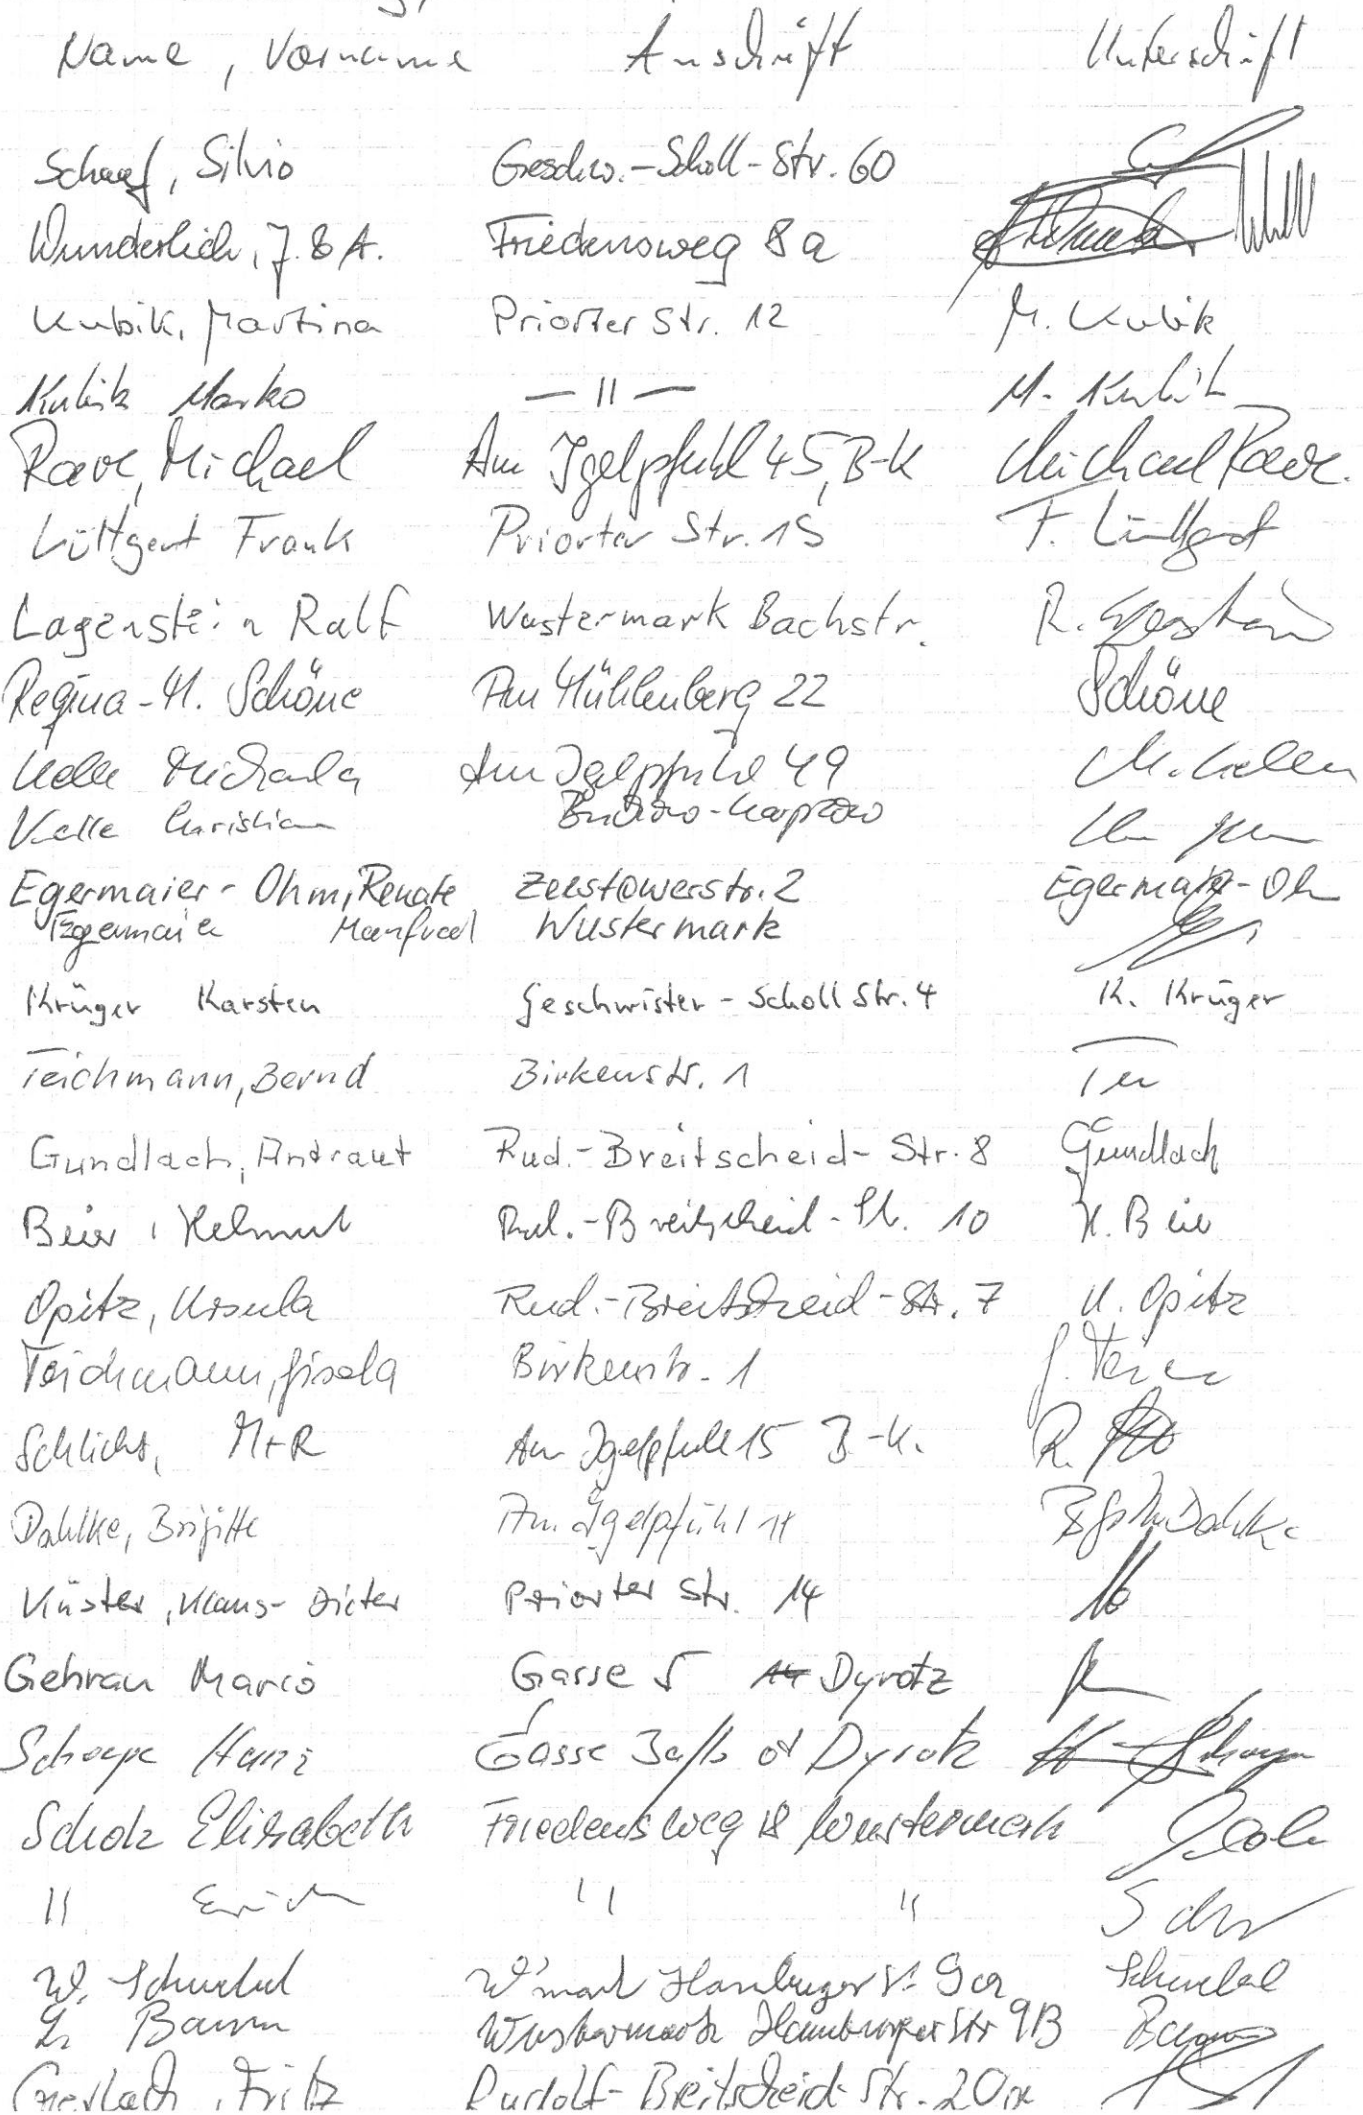 Name, Vorname Anschrift Unterschrift
Schaaf, Silvio Geschw.-Scholl-Str. 60
Wunderlich, J. & A. Friedensweg 8a
Kubik, Martina Priorter Str. 12 M. Kubik
Kubik Marko — 11 — M. Kubik
Rave, Michael Am Igelpfuhl 45, B-K Michael Rave.
Lüttgert Frank Priorter Str. 15 F. Lüttgert
Lagenstein Ralf Wustermark Bachstr. R.
Regina-M. Schöne Am Mühlenberg 22 Schöne
Kelle Michaela Am Igelpfuhl 49 M. Kelle
Kelle Christian Buchow-Karpzow
Egermaier-Ohm, Renate Zeestowerstr. 2 Egermaier-Oh
Egermaier Manfred Wustermark
Krüger Karsten Geschwister-Scholl Str. 4 K. Krüger
Teichmann, Bernd Birkenstr. 1
Gundlach, Antraut Rud.-Breitscheid-Str. 8 Gundlach
Beier, Helmut Rud.-Breitscheid-Str. 10 H. Beier
Opitz, Ursula Rud.-Breitscheid-Str. 7 U. Opitz
Teichmann, Gisela Birkenstr. 1 G.
Schlicht, M+R Am Igelpfuhl 15 B-K. R.
Dahlke, Brigitte Am Igelpfuhl 11 Dahlke
Küster, Klaus-Dieter Priorter Str. 14
Gehrau Mario Gasse 5 Dyrotz
Hans Gasse Dyrotz
Scholz Elisabeth Friedensweg 18 Wustermark
11 Erich 11 11
W. W'mark Hamburger Str. 9a
L. Baum Wustermark Hamburger Str 9B
Gerlach, Fritz Rudolf-Breitscheid-Str. 20a